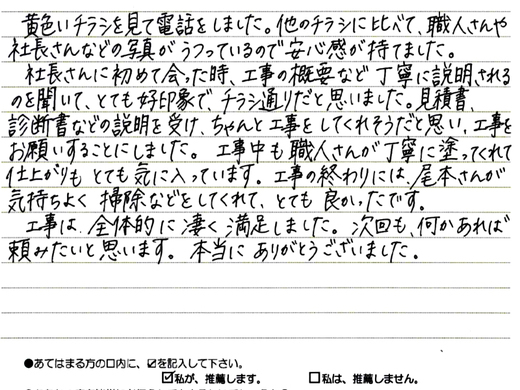 黄色いチラシを見て電話をしました。他のチラシに比べて、職人さんや
社長さんなどの写真がうつっているので安心感が持てました。
社長さんに初めて会った時、工事の概要など丁寧に説明される
のを聞いて、とても好印象で、チラシ通りだと思いました。見積書、
診断書などの説明を受け、ちゃんと工事をしてくれそうだと思い、工事を
お願いすることにしました。工事中も職人さんが丁寧に塗ってくれて
仕上がりもとても気に入っています。工事の終わりには、尾本さんが
気持ちよく掃除などをしてくれて、とても良かったです。
工事は、全体的に凄く満足しました。次回も、何かあれば
頼みたいと思います。本当にありがとうございました。
●あてはまる方の口内に、☑を記入して下さい。
☑私が、推薦します。 □私は、推薦しません。